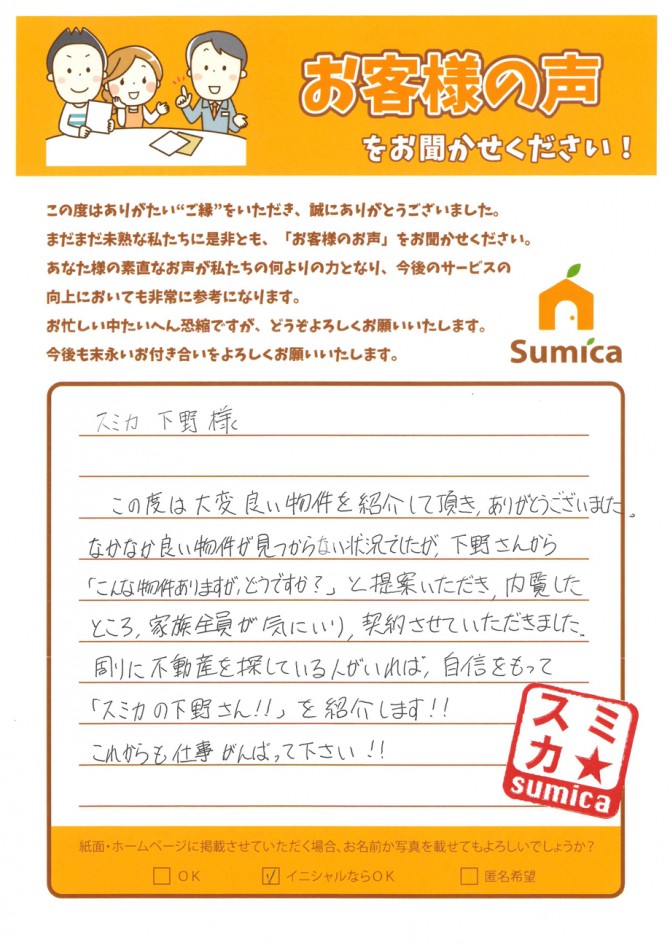 お客様の声
をお聞かせください！
この度はありがたい“ご縁”をいただき、誠にありがとうございました。
まだまだ未熟な私たちに是非とも、「お客様のお声」をお聞かせください。
あなた様の素直なお声が私たちの何よりの力となり、今後のサービスの
向上においても非常に参考になります。
お忙しい中たいへん恐縮ですが、どうぞよろしくお願いいたします。
今後も末永いお付き合いをよろしくお願いいたします。
Sumica
スミカ 下野様
この度は大変良い物件を紹介して頂き,ありがとうございました。
なかなか良い物件が見つからない状況でしたが,下野さんから
「こんな物件ありますが,どうですか?」と提案いただき,内覧した
ところ,家族全員が気にいり,契約させていただきました。
周りに不動産を探している人がいれば,自信をもって
「スミカの下野さん!!」を紹介します!!
これからも仕事がんばって下さい!!
スミ
カ★
sumica
紙面・ホームページに掲載させていただく場合、お名前か写真を載せてもよろしいでしょうか？
OK ✓ イニシャルならOK 匿名希望